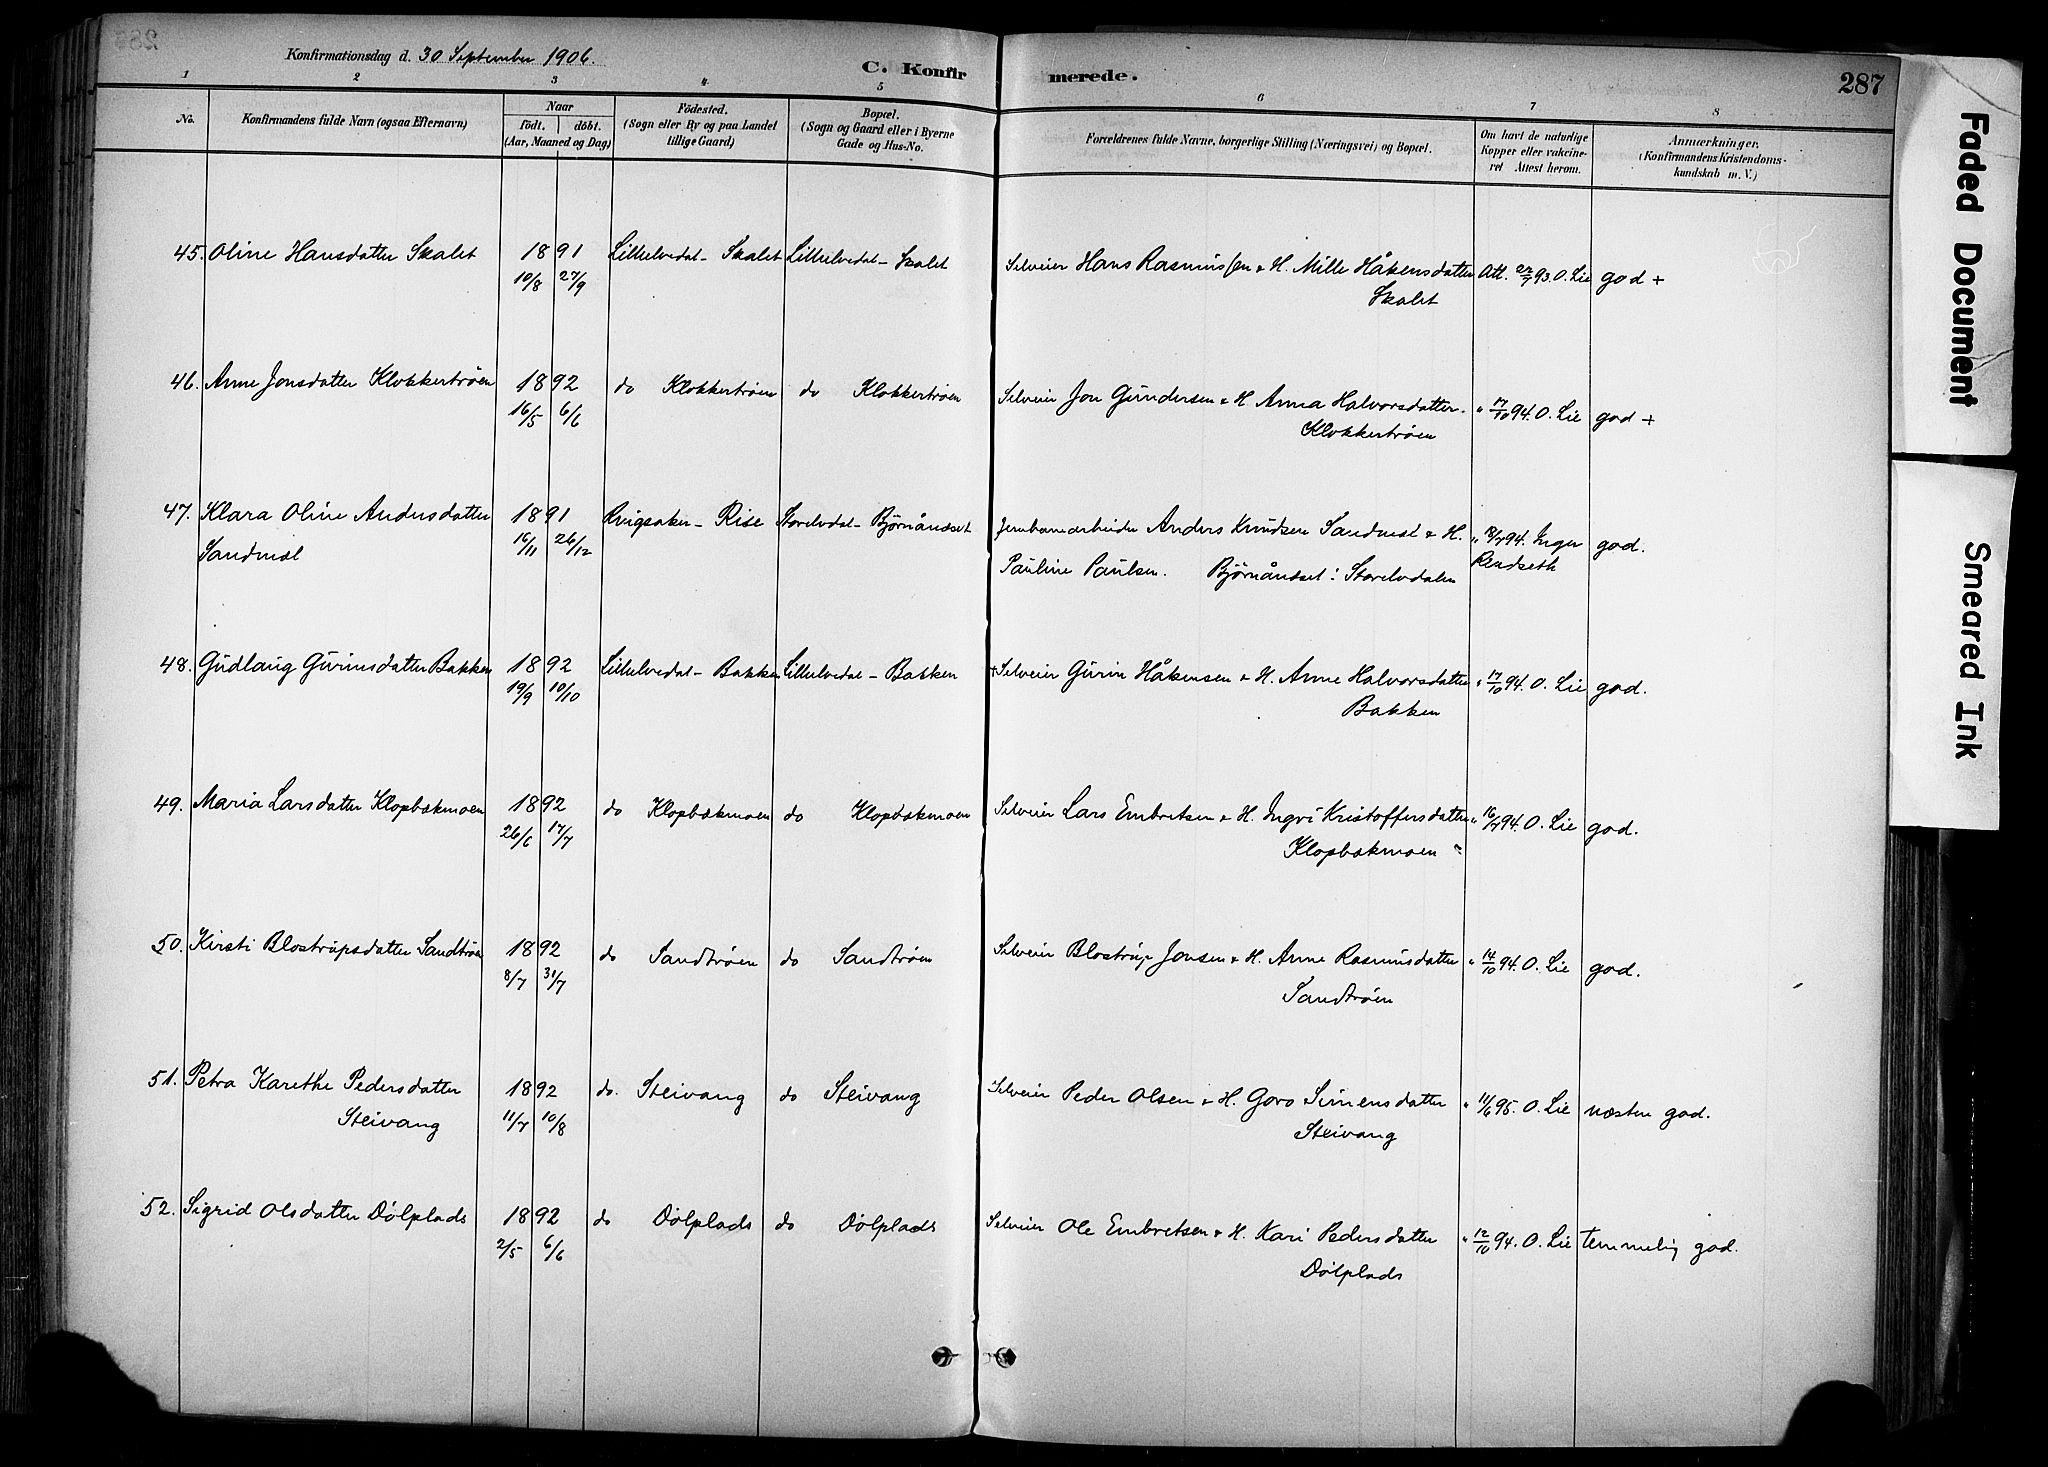 Konfirmationsdag d. 30 September 1906.
C. Konfirmerede.
287
1 2 3 4 5 6 7 8
No.
Konfirmandens fulde Navn (ogsaa Efternavn)
Naar
födt. döbt.
(Aar, Maaned og Dag)
Födested.
(Sogn eller By og paa Landet
tillige Gaard)
Bopæl.
(Sogn og Gaard eller i Byerne
Gade og Hus-No.
Forældrenes fulde Navne, borgerlige Stilling (Næringsvei) og Bopæl.
Om havt de naturlige
Kopper eller vakcine-
ret Attest herom.
Anmærkninger.
(Konfirmandens Kristendoms-
kundskab m. V.)
45. Oline Hansdatter Skalet 1891 Lilleelvedal - Skalet Lilleelvedal - Skalet Selveier Hans Rasmussen & H. Mille Håkensdatter Att. 27/7 93. O. Lie god +
10/8 27/9 Skalet
46. Anne Jonsdatter Klokkertrøen 1892 do Klokkertrøen do Klokkertrøen Selveier Jon Gundersen & H. Anna Halvorsdatter " 17/10 94. O. Lie god +
16/5 6/6 Klokkertrøen
47. Klara Oline Andersdatter 1891 Ringsaker - Rise Storelvdal - Bjørnåndset Jernbanearbeider Anders Knudsen Sandmæl & H. " 18/7 94. Inger god.
Sandmæl 16/11 26/12 Pauline Paulsen. Bjørnåndset i Storelvdalen Rendseth
48. Gudlaug Gurinsdatter Bakken 1892 Lilleelvedal - Bakken Lilleelvedal - Bakken + Selveier Gurin Håkensen & H. Anne Halvorsdatter " 17/10 94. O. Lie god.
19/9 10/10 Bakken
49. Maria Larsdatter Klopbækmoen 1892 do Klopbækmoen do Klopbækmoen Selveier Lars Embretsen & H. Ingri Kristoffersdatter " 16/7 94. O. Lie god.
26/6 17/7 Klopbækmoen
50. Kirsti Blostrupsdatter Sandtrøen 1892 do Sandtrøen do Sandtrøen Selveier Blostrup Jonsen & H. Anne Rasmusdatter " 14/10 94. O. Lie god.
8/7 31/7 Sandtrøen
51. Petra Karethe Pedersdatter 1892 do. Steivang do Steivang Selveier Peder Olsen & H. Goro Simensdatter " 11/6 95. O. Lie næsten god.
Steivang 11/7 10/8 Steivang
52. Sigrid Olsdatter Dølplads 1892 do Dølplads do Dølplads Selveier Ole Embretsen & H. Kari Pedersdatter " 12/10 94. O. Lie temmelig god.
2/5 6/6 Dølplads
Faded Document
Smeared Ink